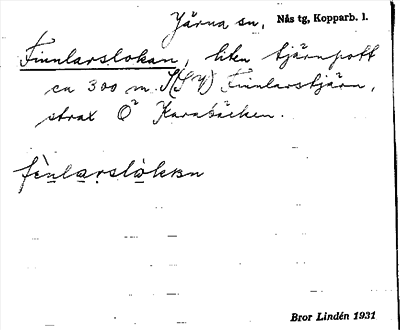 Järna sn. Nås tg, Kopparb. l.
Finnlarslokan, liten tjärnpott
ca 300 m. S(SV) Finnlarstjärn,
strax Ö Karabäcken.
fènlarslòkkan
Bror Lindén 1931